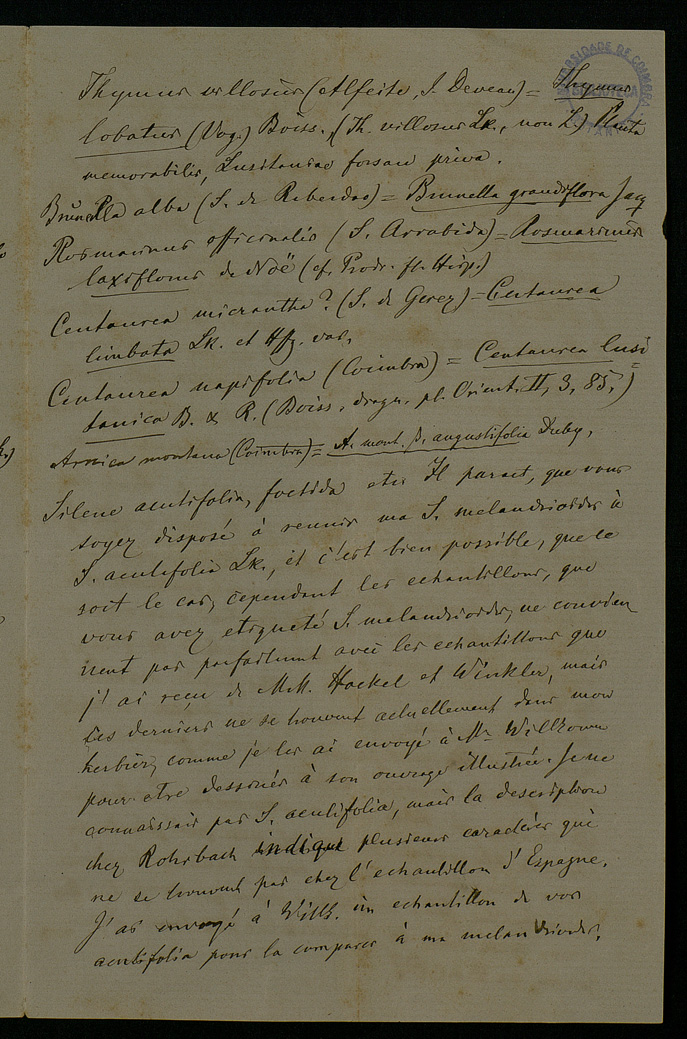 Thymus villosus (Alfeite, J. Deveau) = Thymus
lobatus (Vog.) Boiss. (Th. villosus Lk., non L.) Planta
memorabilis, Lusitaniae forsan priva.
Brunella alba (S. de Rebordao) = Brunella grandiflora Jacq
Rosmarinus officinalis (S. Arrabida) = Rosmarinus
laxiflorus de Noë (cf. Prodr. fl. Hisp.)
Centaurea micrantha? (S. de Gerez) = Centaurea
limbata Lk. et Hffg. var.
Centaurea napifolia (Coimbra) = Centaurea lusi
tanica B. & R. (Boiss. diagn. pl. Orient. II, 3, 85.)
Arnica montana (Coimbra) = A. mont. β. augustifolia Duby.
Silene acutifolia, foetida etc Il parait, que vous
soyez disposé à reunir ma S. melandrioides à
S. acutifolia Lk., et c'est bien possible, que ce
soit le cas, cependant les echantillons, que
vous avez etiqueté S. melandrioides, ne convien
nent pas parfaitment avec les echantillons que
j'ai reçu de MM. Hackel et Winkler, mais
ces derniers ne se trouvent actuellement dans mon
herbier, comme je les ai envoyé à Mr Willkomm
pour etre dessinés à son ouvrage illustrée. Je ne
connaissais pas S. acutifolia, mais la description
chez Rohrbach indique plusieurs caractères qui
ne se trouvent pas chez l'echantillon d'Espagne.
J'ai envoyé à Willk. un echantillon de vos
acutifolia pour la comparer à ma melandrioides.